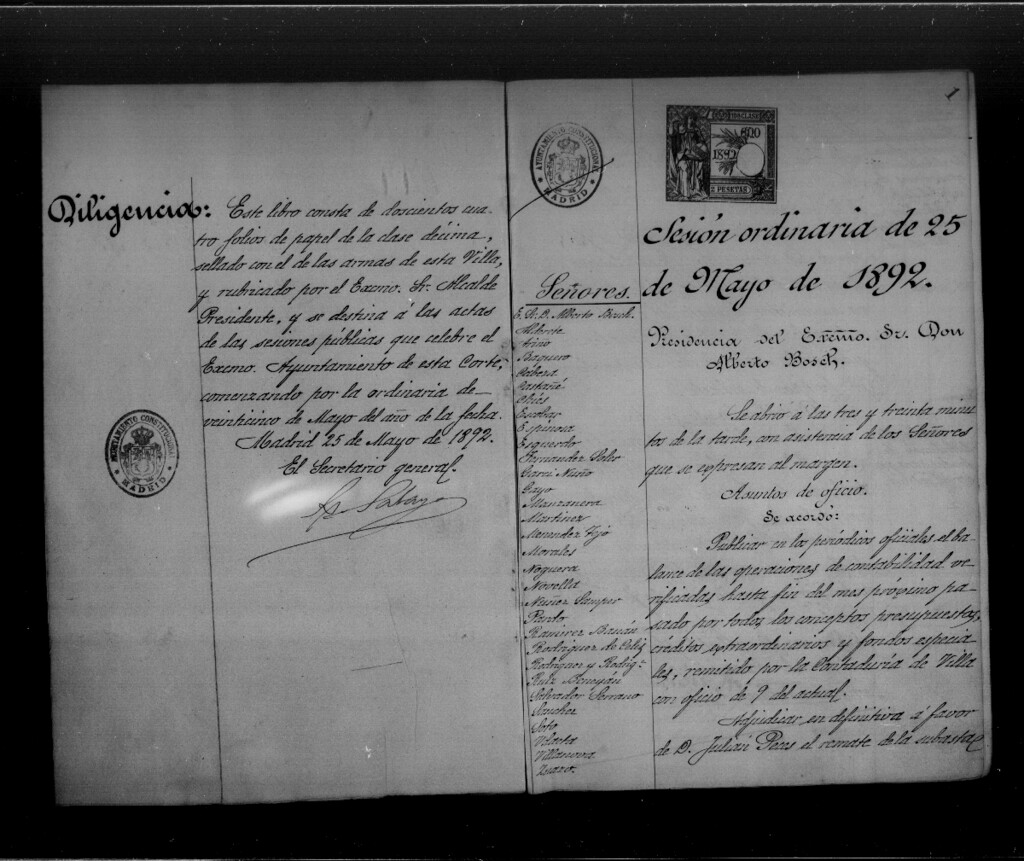 Diligencia: Este libro consta de doscientos cua
tro folios de papel de la clase décima,
sellado con el de las armas de esta Villa,
y rubricado por el Excmo. Sr. Alcalde
Presidente, y se destina á las actas
de las sesiones públicas que celebre el
Excmo. Ayuntamiento de esta Corte,
comenzando por la ordinaria de
veinticinco de Mayo del año de la fecha.
Madrid 25 de Mayo de 1892.
El Secretario general.
AYUNTAMIENTO CONSTITUCIONAL
MADRID
1
AYUNTAMIENTO CONSTITUCIONAL
MADRID
10ª CLASE
1892
2 PESETAS
Señores.
E. S. D. Alberto Bosch.
Ariño
Baquero
Cábera
Castañé
Chíes
Escobar
Espinosa
Esquerdo
Fernandez
Garci Nuño
Gayo
Manzanera
Martinez
Menendez Tejo
Morales
Noguera
Novella
Nuñez Samper
Pardo
Ramirez
Rodriguez de Celis
Rodriguez y Rodrig-
Ruiz
Salvador Serrano
Sanchez
Soto
Villanova
Sesión ordinaria de 25
de Mayo de 1892.
Presidencia del Excmo. Sr. Don
Alberto Bosch.
Se abrió á las tres y treinta minu
tos de la tarde, con asistencia de los Señores
que se expresan al margen.
Asuntos de oficio.
Se acordó:
Publicar en los periódicos oficiales el ba
lance de las operaciones de contabilidad ve
rificadas hasta fin del mes próximo pa
sado por todos los conceptos presupuestos,
créditos extraordinarios y fondos especia
les, remitido por la Contaduría de Villa
con oficio de 9 del actual.
Adjudicar en definitiva á favor
de D. Julián Peces el remate de la subasta